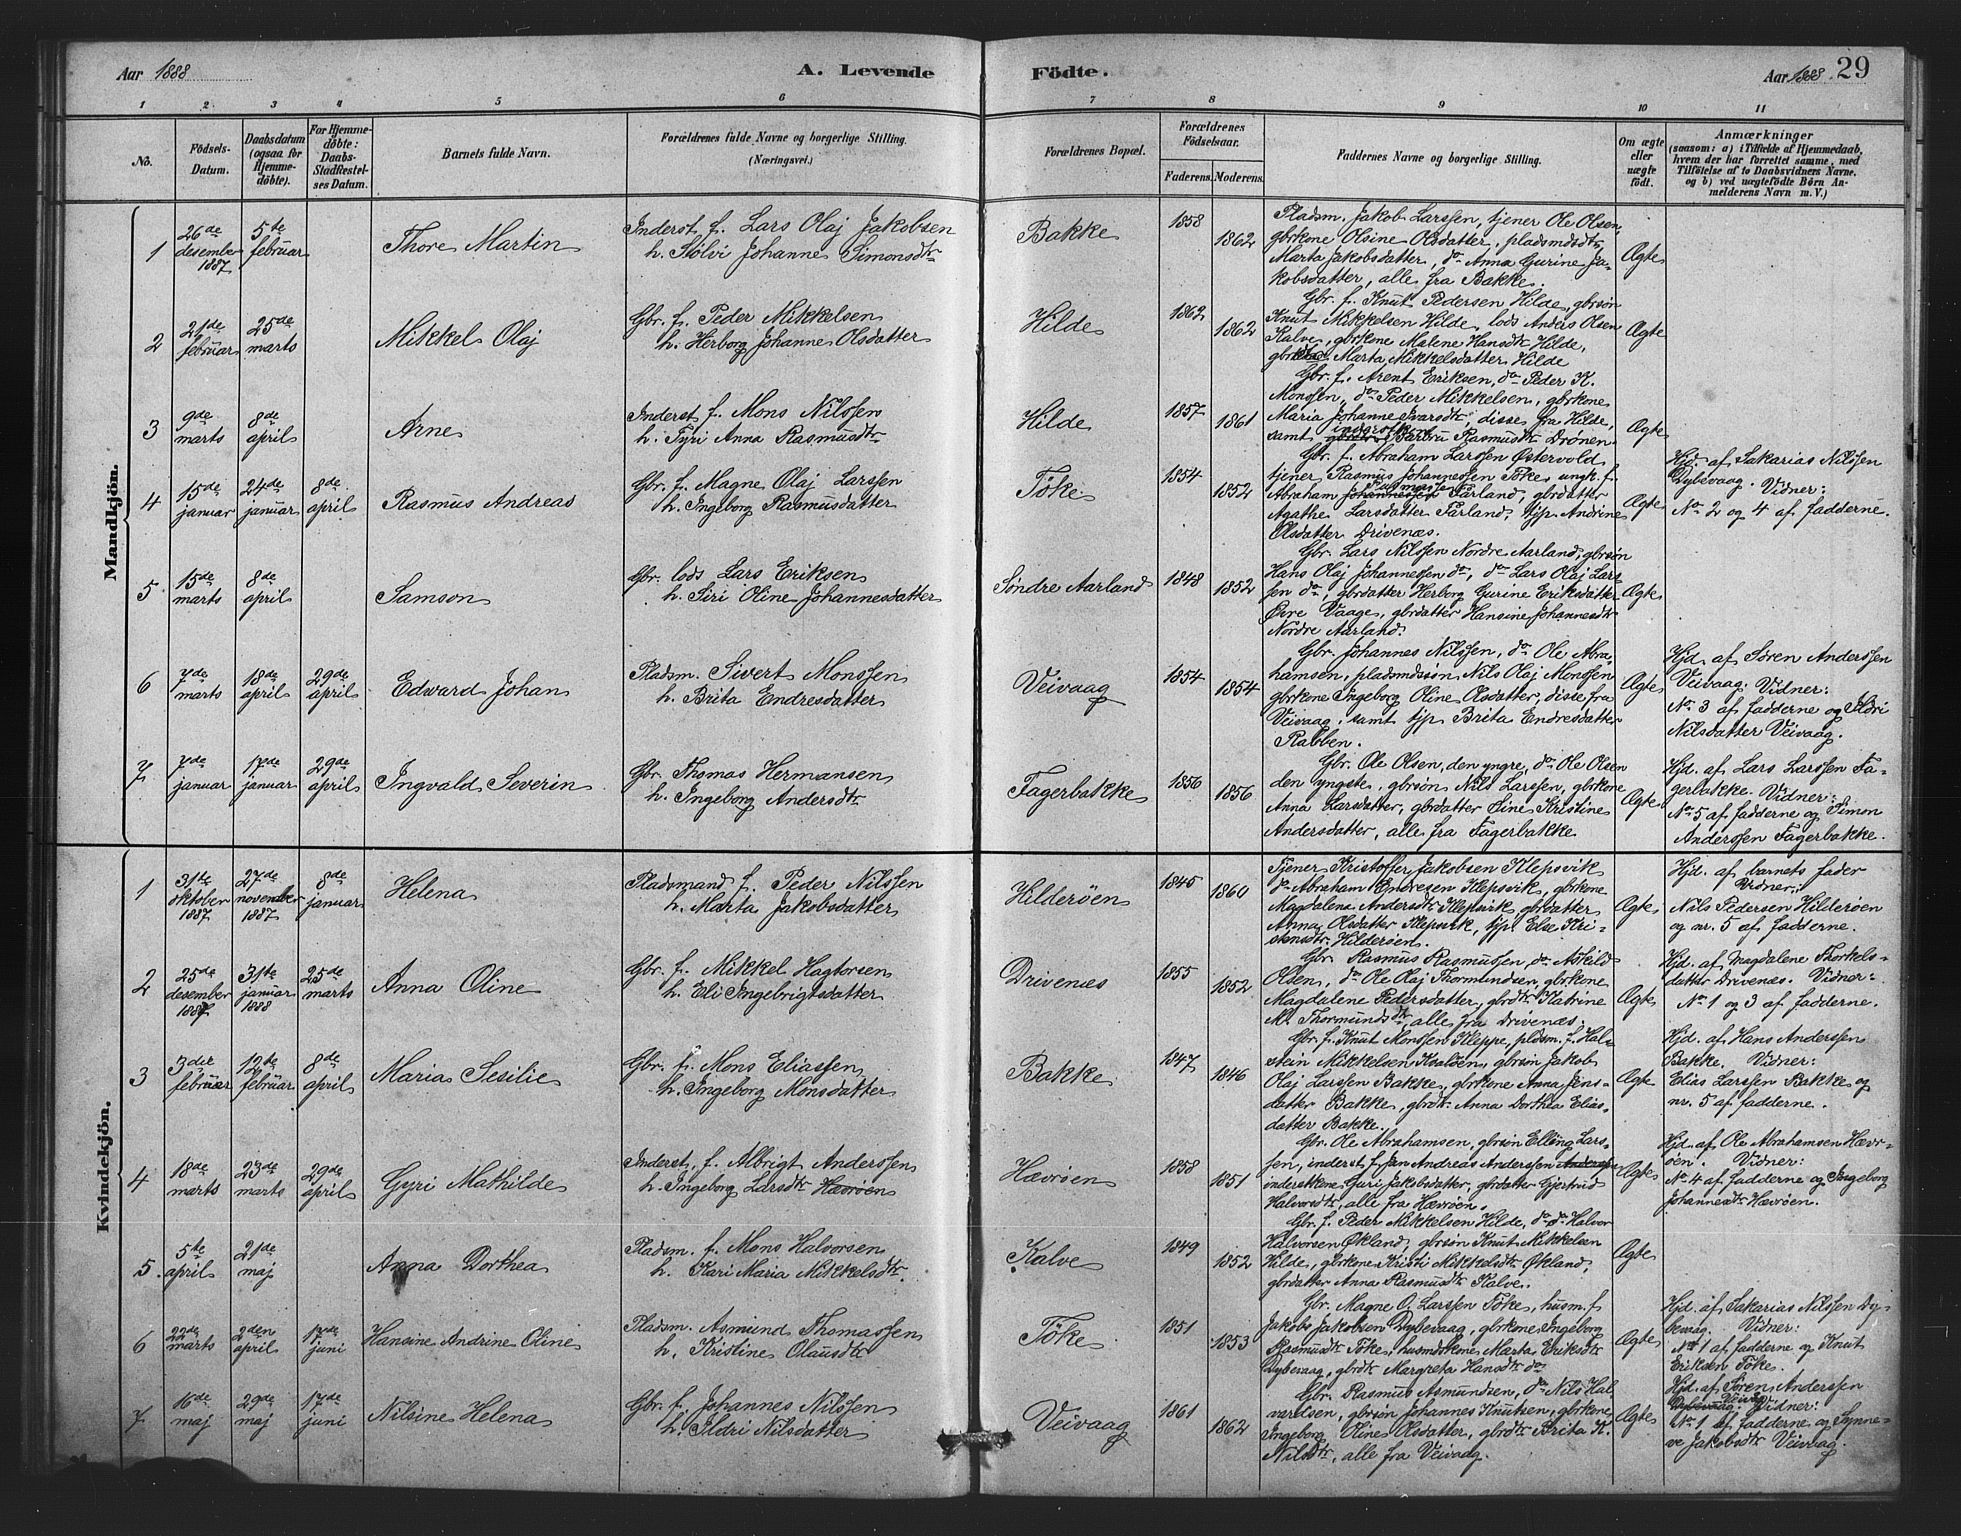 Aar 1888
A. Levende
Födte.
Aar 1888.
29
1 2 3 4 5 6 7 8 9 10 11
No.
Födsels-
Datum.
Daabsdatum
(ogsaa for
Hjemme-
döbte).
For Hjemme-
döbte:
Daabs-
Stadfæstel-
ses Datum.
Barnets fulde Navn.
Forældrenes fulde Navne og borgerlige Stilling.
(Næringsvei.)
Forældrenes Bopæl.
Forældrenes
Födselsaar.
Faderens.
Moderens.
Faddernes Navne og borgerlige Stilling.
Om ægte
eller
uægte
födt.
Anmærkninger
(saasom: a) i Tilfælde af Hjemmedaab,
hvem der har forrettet samme, med
Tilföielse af to Daabsvidners Navne,
og b) ved uægtefödte Börn An-
melderens Navn m. V.)
Mandkjön.
1
26de
desember
1887
5te
februar
Thore Martin
Inderst f. Lars Olaj Jakobsen
h. Sölvi Johanne Simonsdtr
Bakke
1858
1862
Pladsm. Jakob Larssen, tjener Ole Olsen,
gbrkone Olsine Olsdatter, pladsmdsdtr
Marta Jakobsdatter, do Anna Gurine Ja-
kobsdatter, alle fra Bakke.
Ægte
2
21de
februar
25de
marts
Mikkel Olaj
Gbr. f. Peder Mikkelsen
h. Herborg Johanne Olsdatter
Hilde
1862
1862
Gbr. f. Knut Pedersen Hilde, gbrsön
Knut Mikkelsen Hilde, lods Anders Olsen
Kalve, gbrkone Malene Hansdtr Hilde,
Marta Mikkelsdatter Hilde
Ægte
3
9de
marts
8de
april
Arne
Inderst f. Mons Nilssen
h. Tyri Anna Rasmusdtr
Hilde
1857
1861
Gbr. f. Arent Eriksen, do Peder K.
Monssen, do Peder Mikkelsen, gbrkone
Maria Johanne Ivarsdtr, disse fra Hilde,
samt Barbru Rasmusdtr Drönen.
Ægte
4
15de
januar
24de
januar
8de
april
Rasmus Andreas
Gbr. f. Magne Olaj Larssen
h. Ingeborg Rasmusdatter
Töke
1854
1852
Gbr. f. Abraham Larssen Östervold
tjener Rasmus Johannessen Töke, ungk. f.
Abraham Johannessen Rasmussen Færland, gbrdatter
Agathe Larsdatter Færland, tjp Andrine
Olsdatter Drivenæs.
Ægte
Hjd. af Sakarias Nilssen
Dybevaag. Vidner:
No 2 og 4 af fadderne.
5
15de
marts
8de
april
Samson
Gbr. lods Lars Eriksen
h. Siri Oline Johannesdatter
Söndre Aarland
1848
1852
Gbr. Lars Nilssen Nordre Aarland, gbrsön
Hans Olaj Johannessen do, do Lars Olaj Lars-
sen do, gbrdatter Herborg Gurine Eriksdatter
Övre Vaage, gbrdatter Hansine Johannesdtr
Nordre Aarland.
Ægte
6
7de
marts
18de
april
29de
april
Edward Johan
Pladsm. Sivert Monssen
h. Brita Endresdatter
Veivaag
1854
1854
Gbr. Johannes Nilssen, do Ole Abra-
hamsen, pladsmdssön Nils Olaj Monssen
gbrkone Ingeborg Oline Olsdatter, disse fra
Veivaag, samt tjp Brita Endresdatter
Rabben.
Ægte
Hjd. af Sören Anderssen
Veivaag. Vidner:
No 3 af fadderne og Ildri
Nilsdatter Veivaag.
7
7de
januar
17de
januar
29de
april
Ingvald Severin
Gbr. Thomas Hermansen
h. Ingeborg Andersdtr
Fagerbakke
1856
1856
Gbr. Ole Olsen, den yngre, do Ole Olsen
den yngste, gbrsön Nils Larssen, gbrkone
Anna Larsdatter, gbrdatter Sine Kristine
Andersdatter, alle fra Fagerbakke.
Ægte
Hjd. af Lars Larssen Fa-
gerbakke. Vidner:
No 5 af fadderne og Simon
Anderssen Fagerbakke.
Kvindekjön.
1
31te
oktober
1887
27de
november
1887
8de
januar
Helena
Pladsmand f. Peder Nilssen
h. Marta Jakobsdatter
Hilderöen
1845
1860
Tjener Kristoffer Jakobsen Klepsvik
do Abraham Endresen Klepsvik, gbrkone
Magdalena Andersdtr Klepsvik gbrdatter
Anna Olsdatter Klepsvik, tjp Else Kri-
stensdtr Hilderöen.
Ægte
Hjd. af barnets fader
Vidner:
Nils Pedersen Hilderöen
og nr. 5 af fadderne.
2
25de
desember
1887
31te
januar
1888
25de
marts
Anna Oline
Gbr. f. Mikkel Hagtorsen
h. Eli Ingebrigtsdatter
Drivenæs
1855
1852
Gbr. Rasmus Rasmussen, do Askild
Olsen, do Ole Olaj Thormundsen, gbrkone
Magdalene Pedersdatter, gbrdtr Katrine
M. Thormundsdtr, alle fra Drivenæs.
Ægte
Hjd. af Magdalene Thorkels-
datter Drivenæs. Vidner:
No 1 og 3 af fadderne.
3
3die
februar
12te
februar
8de
april
Maria Sesilie
Gbr. f. Mons Eliassen
h. Ingeborg Monsdatter
Bakke
1847
1846
Gbr. f. Knut Monssen Kleppe, pldsm. f. Hal-
stein Mikkelsen Kvalöen, gbrsön Jakob
Olaj Larssen Bakke, gbrkone Anna Jens-
datter Bakke, gbrdtr Anna Dorthea Elias-
datter Bakke.
Ægte
Hjd. af Hans Anderssen
Bakke. Vidner:
Elias Larssen Bakke og
nr. 5 af fadderne.
4
18de
marts
23de
marts
29de
april
Gyri Mathilde
Inderst. f. Albrigt Anderssen
h. Ingeborg Larsdtr Hævröen
Hævröen
1858
1851
Gbr. Ole Abrahamsen, gbrsön Elling Lars-
sen, inderst f. Jan Andreas Anderssen
inderstkone Guri Jakobsdatter, gbrdatter Gjertrud
Halvorsdtr, alle fra Hævröen.
Ægte
Hjd. af Ole Abrahamsen Hævr-
öen. Vidner:
No 4 af fadderne og Ingeborg
Johannesdtr Hævröen.
5.
5te
april
21de
maj
Anna Dorthea
Pladsm. f. Mons Halvorsen
h. Kari Maria Mikkelsdtr.
Kalve
1849
1852
Gbr. f. Peder Mikkelsen Hilde, do do Halvor
Halvorsen Ökland, gbrsön Knut Mikkelsen
Hilde, gbrkone Kristi Mikkelsdtr Ökland,
gbrdatter Anna Rasmusdtr Kalve.
Ægte
6
22de
marts
2den
april
17de
juni
Hansine Andrine Oline
Pladsm. Asmund Thomassen
h. Kristine Olausdtr
Töke
1851
1853
Gbr. Magne O. Larssen Töke, husm. f.
Jakob Jakobsen Dybevaag, gbrkone Ingeborg
Rasmusdtr Töke, husmdkone Marta Eriksdtr
Dybevaag, gbrdtr Margreta Hansdtr do
Ægte
Hjd. af Sakarias Nilssen Dy-
bevaag. Vidner:
No 1 af fadderne og Knut
Eriksen Töke.
7
16de
maj
29de
maj
17de
juni
Nilsine Helena
Gbr. f. Johannes Nilssen
h. Ildri Nilsdatter
Veivaag
1861
1862
Gbr. Rasmus Asmundsen, do Nils Hal-
vardsen, gbrsön Johannes Knutsen, gbrkone
Ingeborg Oline Olsdatter, gbrdtr Brita K.
Nilsdtr, alle fra Veivaag.
Ægte
Hjd. af Sören Anderssen
Dybevaag. Veivaag Vidner:
No 1 af fadderne og Synne-
ve Jakobsdtr Veivaag.